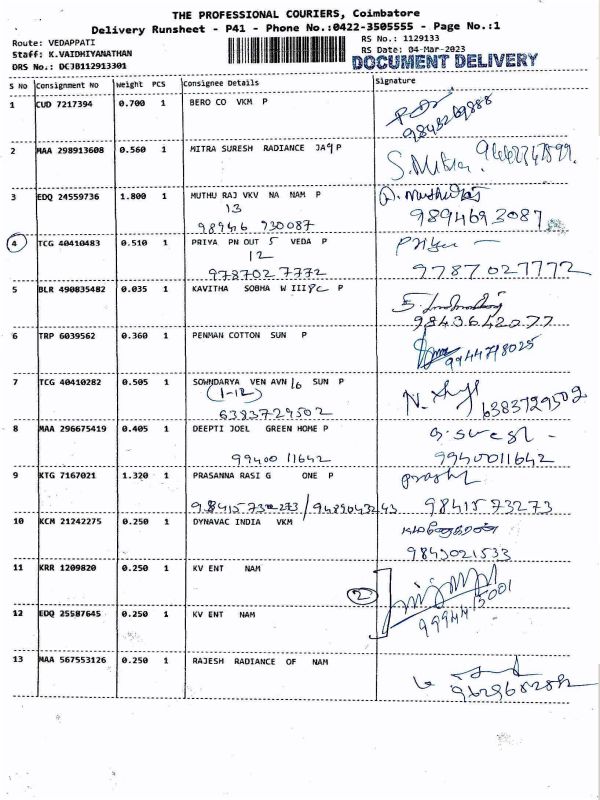 THE PROFESSIONAL COURIERS, Coimbatore
Delivery Runsheet - P41 - Phone No.:0422-3505555 - Page No.:1
Route: VEDAPPATI
Staff: K.VAIDHIYANATHAN
DRS No.: DCJB112913301
RS No.: 1129133
RS Date: 04-Mar-2023
DOCUMENT DELIVERY
S No Consignment No Weight PCS Consignee Details Signature
1 CUD 7217394 0.700 1 BERO CO VKM P
9843269888
2 MAA 298913608 0.560 1 MITRA SURESH RADIANCE JA9P
S. Mitra.
3 EDQ 24559736 1.800 1 MUTHU RAJ VKV NA NAM P
13
989446 930087
9894693087
4 TCG 40410483 0.510 1 PRIYA PN OUT 5 VEDA P
12
978702 7772
9787027772
5 BLR 490835482 0.035 1 KAVITHA SOBHA W III8C P
9843642077
6 TRP 6039562 0.360 1 PENMAN COTTON SUN P
9944798025
7 TCG 40410282 0.505 1 SOWNDARYA VEN AVN16 SUN P
(1-12)
6383729502
6383729502
8 MAA 296675419 0.405 1 DEEPTI JOEL GREEN HOME P
99400 11642
9940011642
9 KTG 7167021 1.320 1 PRASANNA RASI G ONE P
98415 73273
10 KCM 21242275 0.250 1 DYNAVAC INDIA VKM
9843021533
11 KRR 1209820 0.250 1 KV ENT NAM
2
9994415001
12 EDQ 25587645 0.250 1 KV ENT NAM
13 MAA 567553126 0.250 1 RAJESH RADIANCE OF NAM